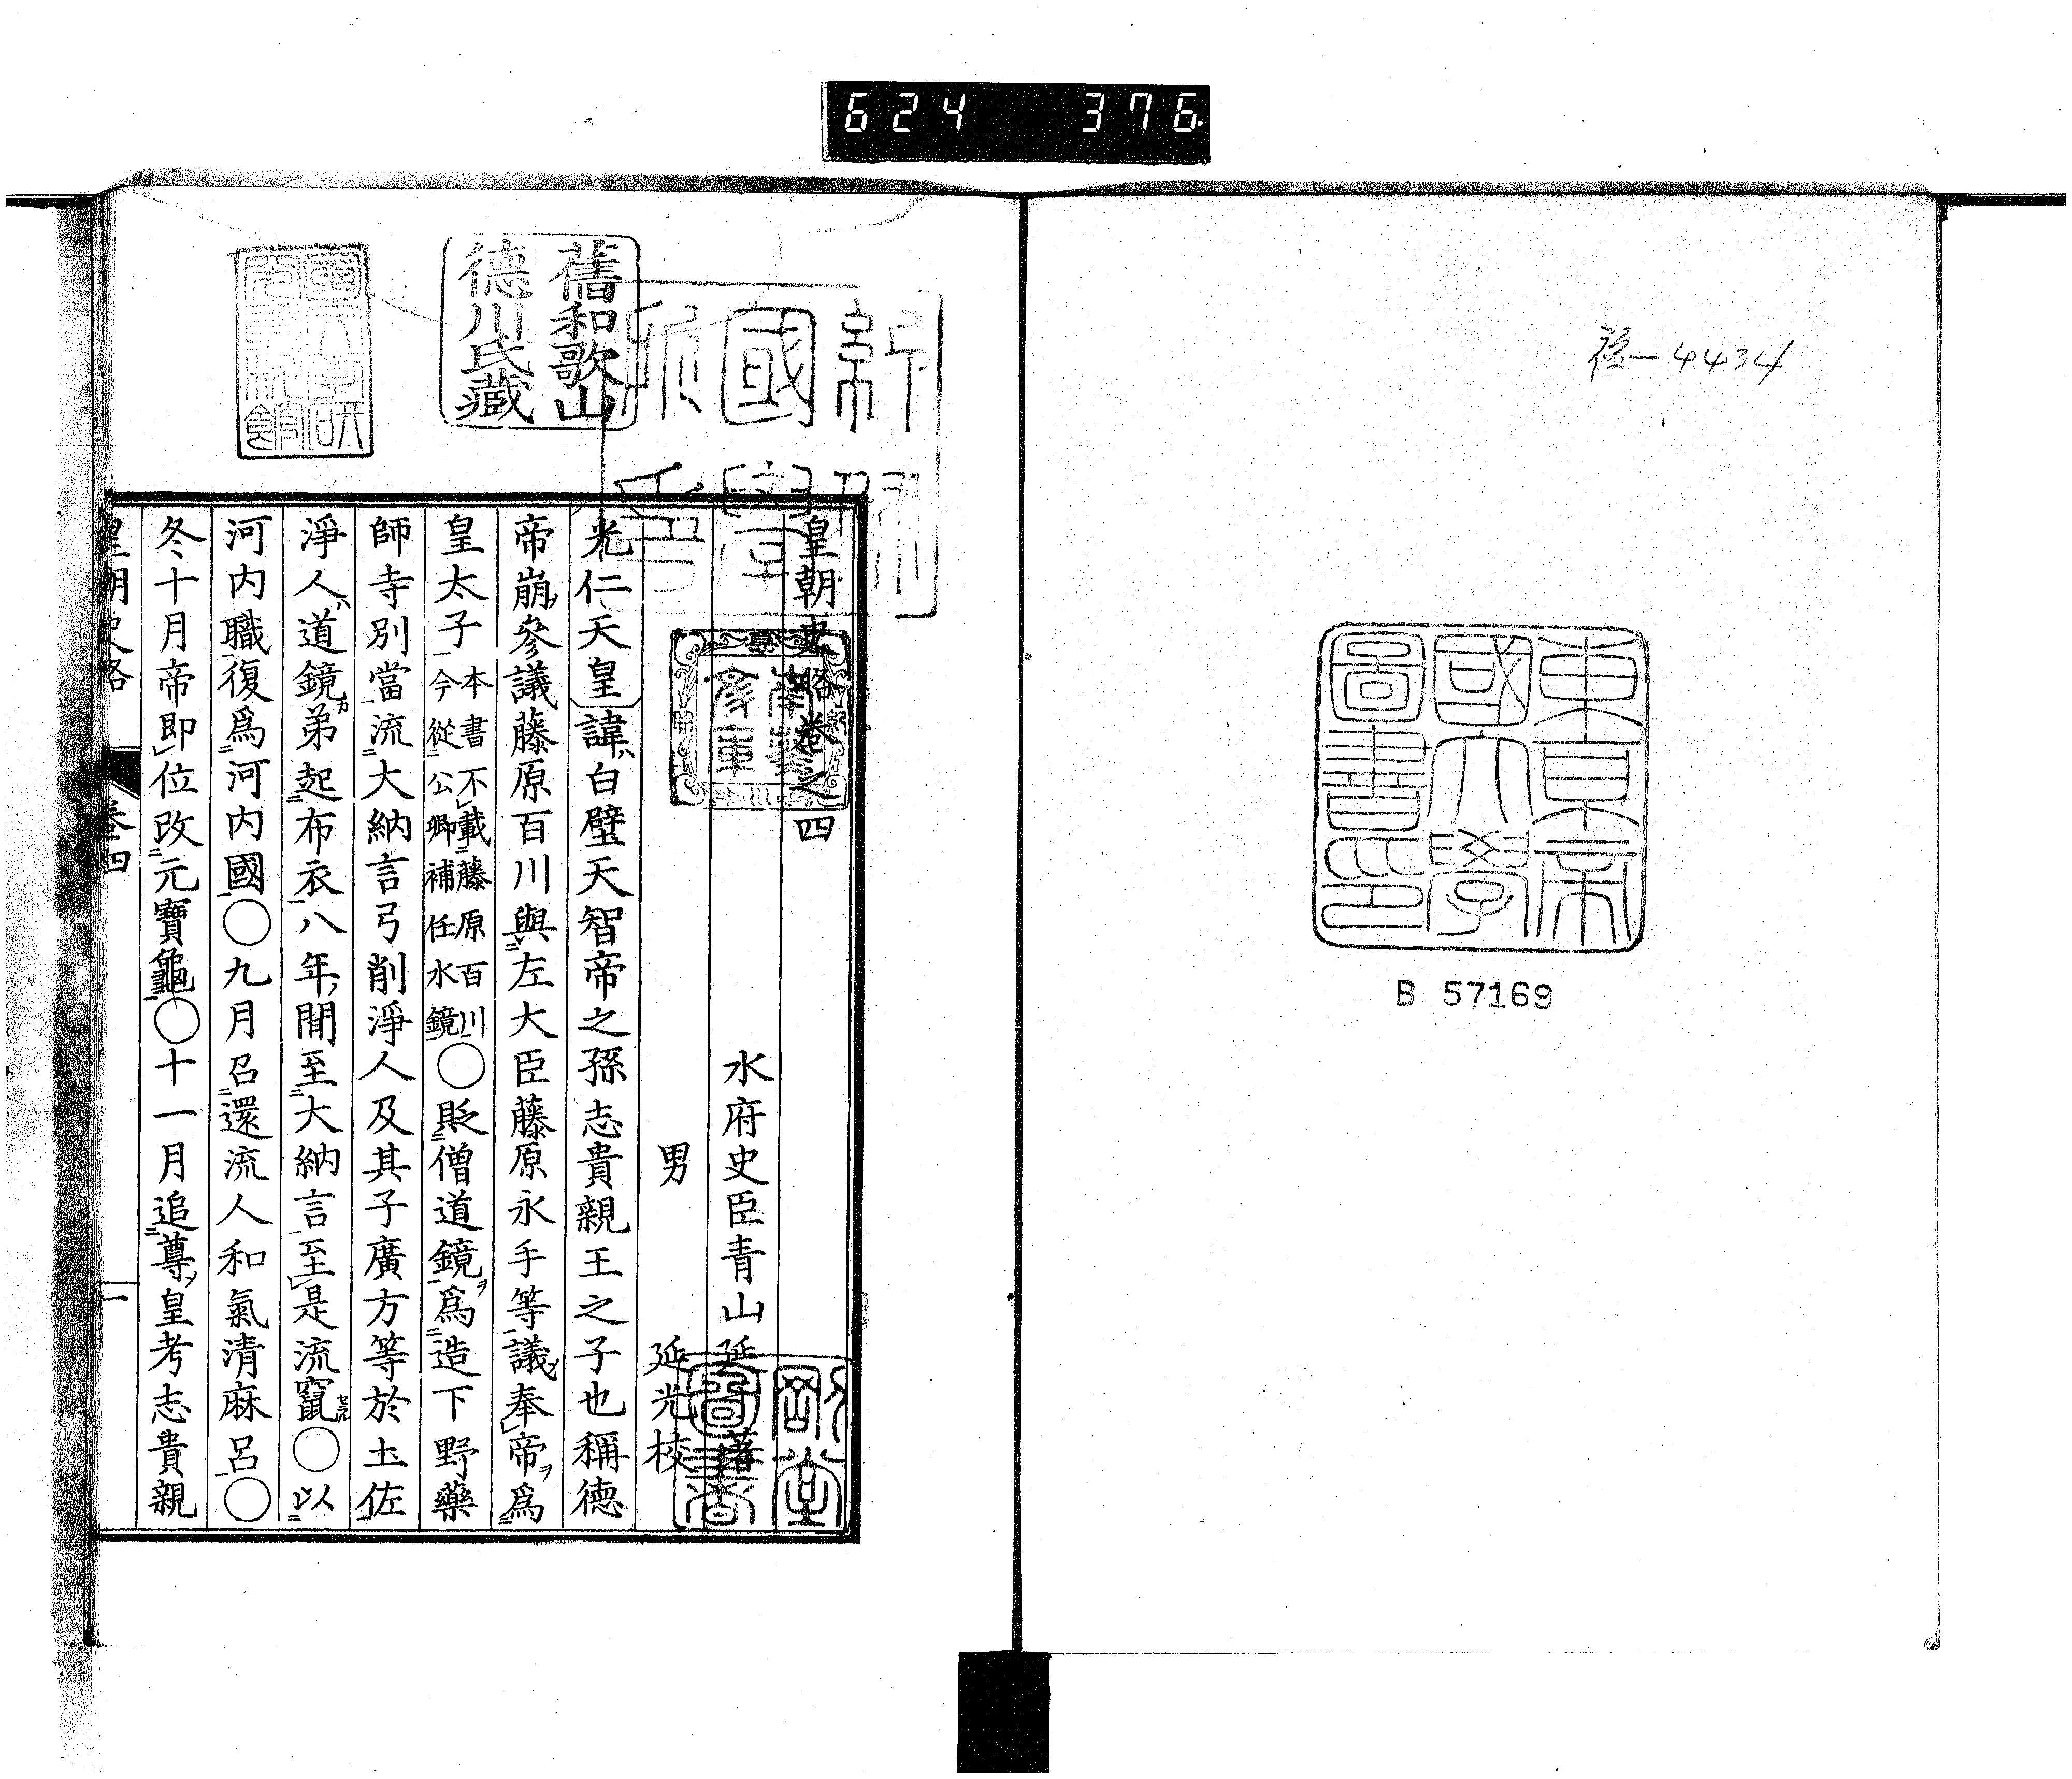 624 376
福一4434
東京帝
國大學
圖書印
B 57169
舊和歌山
德川氏藏
皇朝史略卷之四
水府史臣青山延
著
男 延光校
光仁天皇諱ハ白璧天智帝之孫志貴親王之子也稱德
帝崩ノ參議藤原百川與左大臣藤原永手等議ノ奉帝ヲ爲
皇太子本書不載藤原百川今從公卿補任水鏡〇貶僧道鏡ヲ爲造下野藥
師寺別當流大納言弓削淨人及其子廣方等於土佐
淨人ハ道鏡カ弟起布衣八年ノ間至大納言至是流竄セラル〇以
河内職復爲河内國〇九月召還流人和氣清麻呂〇
冬十月帝即位改元寶龜〇十一月追尊ノ皇考志貴親
皇朝史略
卷四
一